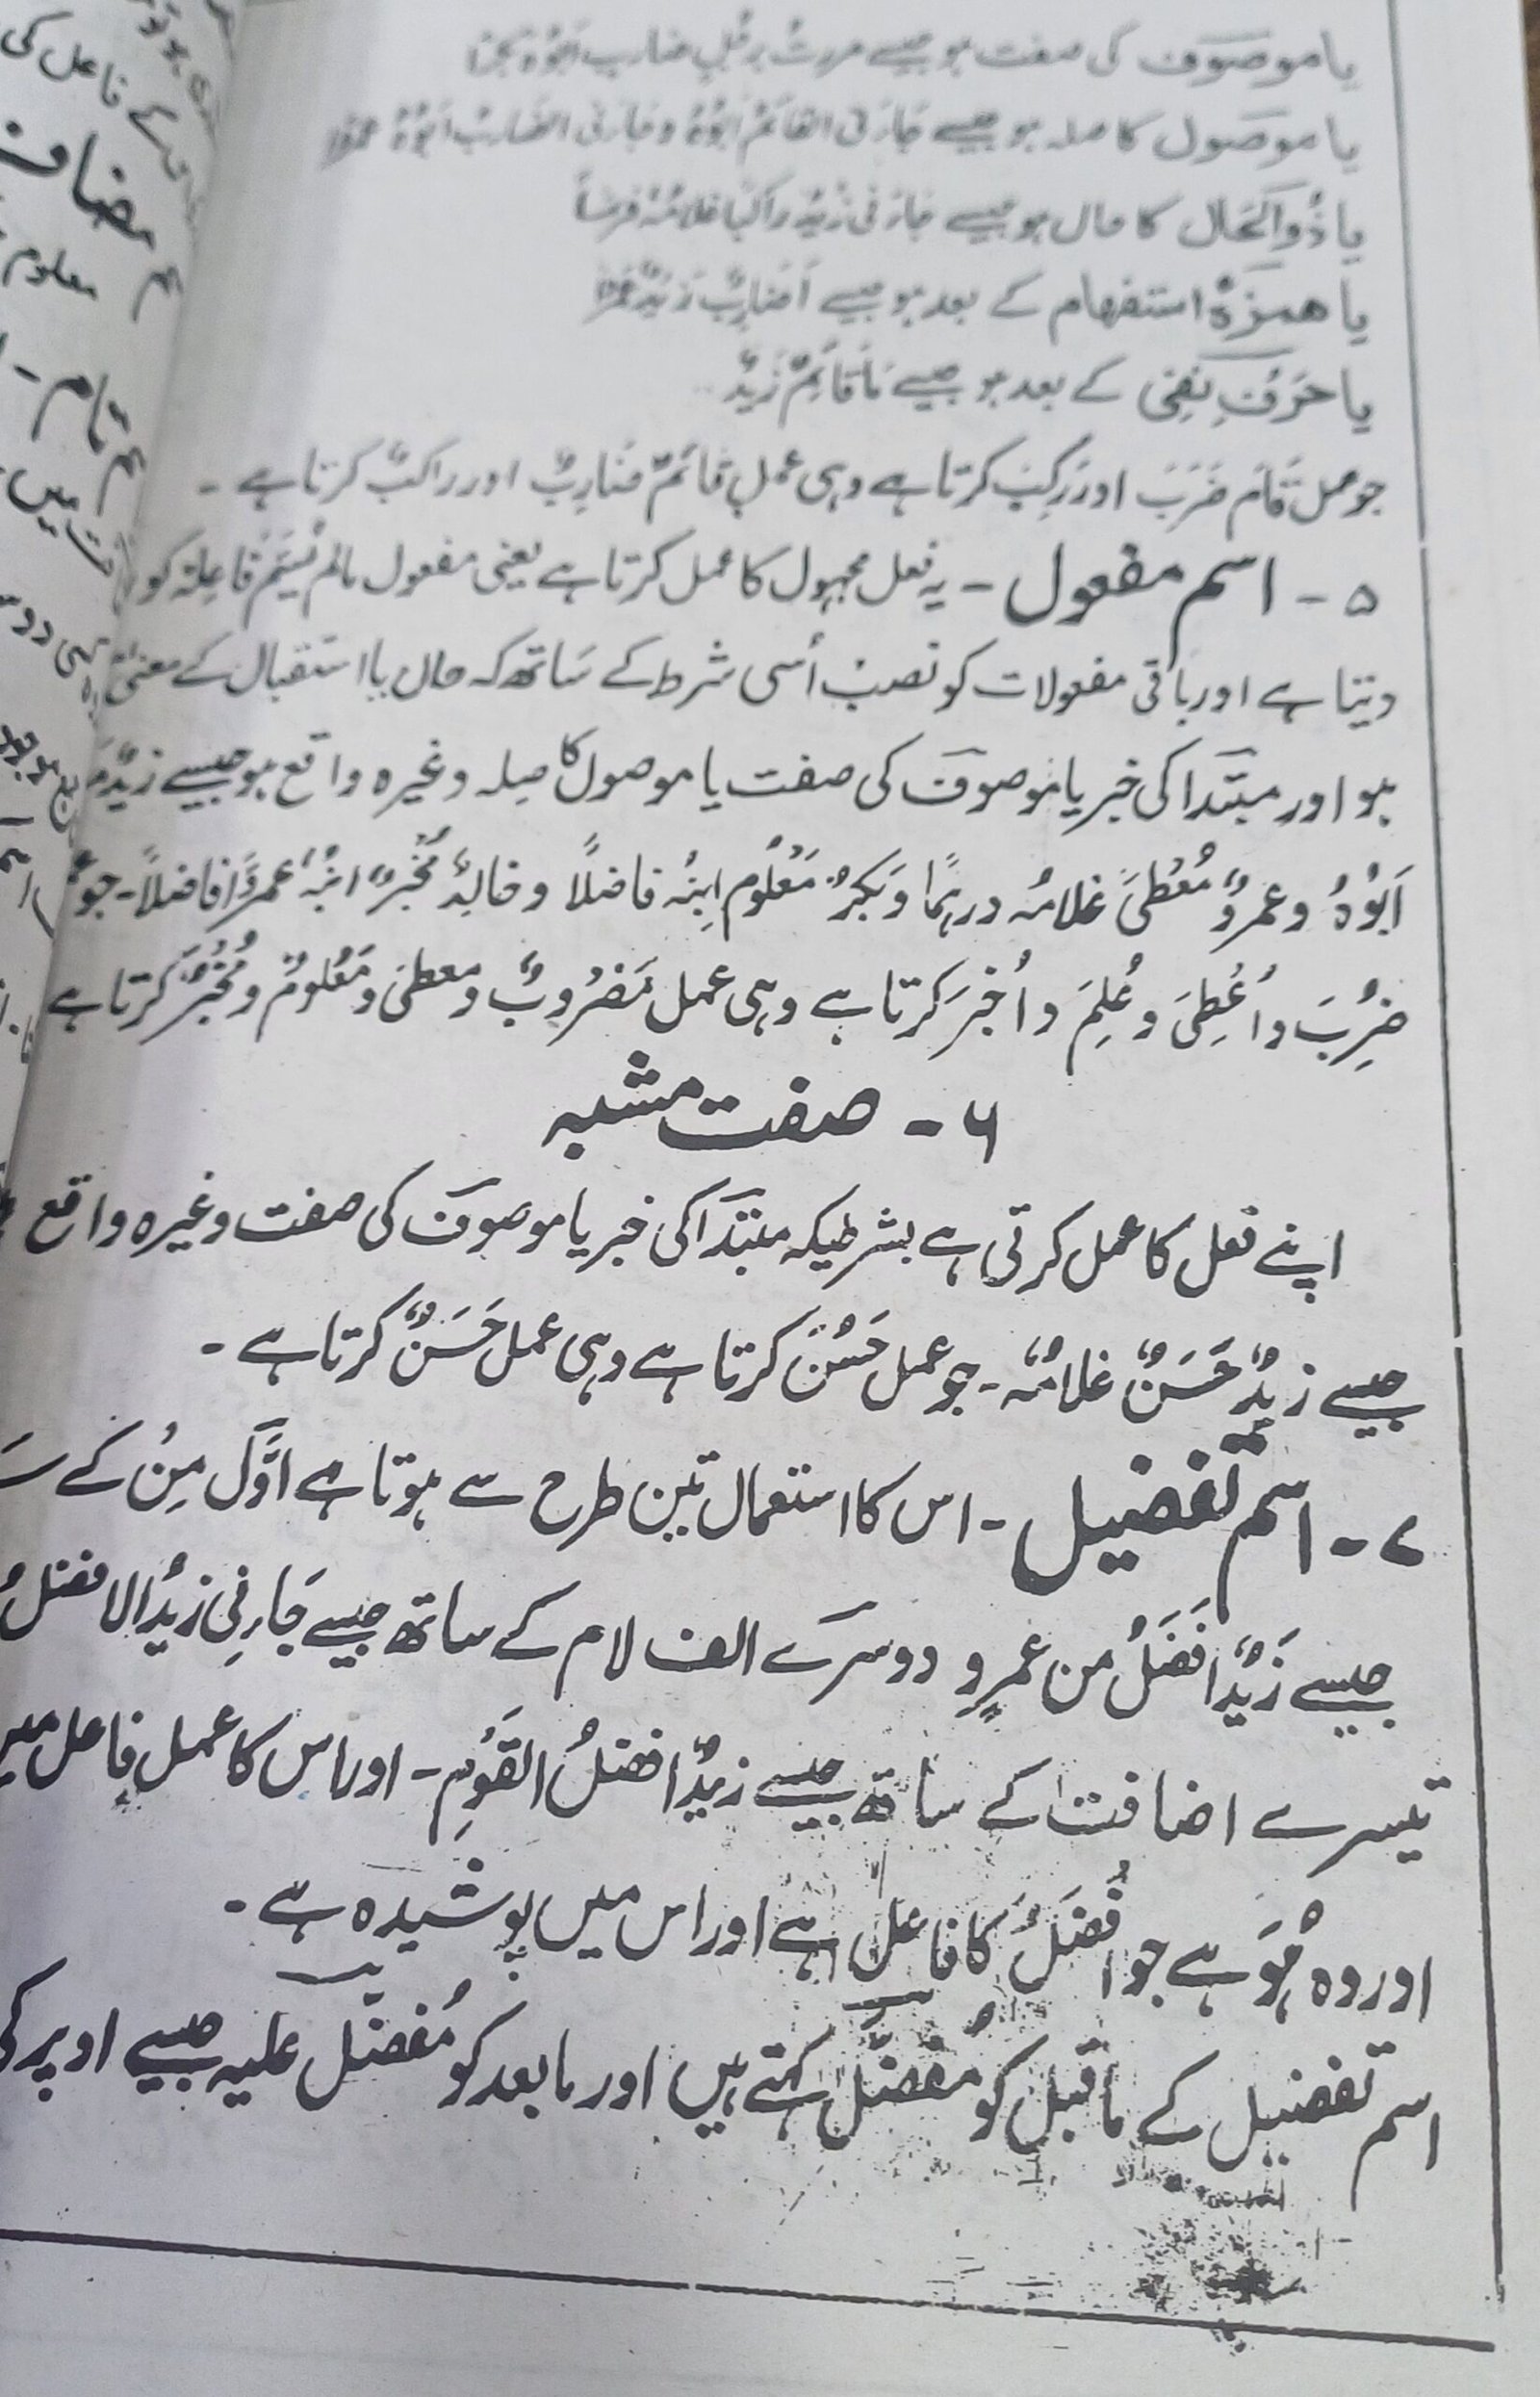 یا موصوف کی صفت ہو جیسے مررتُ برجُلٍ ضاربٍ اَبُوْہُ بَکرًا
یا موصول کا صلہ ہو جیسے جَاءَنِی القائمُ اَبُوْہُ وجَاءَنی الضاربُ اَبُوْہُ عمروًا
یا ذُوالحَال کا حال ہو جیسے جَاءَنی زیدٌ راکبًا غلامُہٗ فرسًا
یا ھمزہ استفہام کے بعد ہو جیسے اَضَارِبٌ زَیْدٌ عَمْرًا
یا حَرفِ نفِی کے بعد ہو جیسے مَا قَائِمٌ زَیْدٌ
جو عمل قَامَ ضَرَبَ اور رَکِبَ کرتا ہے وہی عمل قائمٌ ضَارِبٌ اور راکبٌ کرتا ہے ۔
۵ - اسم مفعول - یہ فعل مجہول کا عمل کرتا ہے یعنی مفعول مالم یُسَمَّ فَاعِلہٗ کو
دیتا ہے اور باقی مفعولات کو نصب اُسی شرط کے سَاتھ کہ حال یا استقبال کے معنیٰ
ہو اور مبتَدا کی خبر یا موصوف کی صفت یا موصول کا صِلہ وغیرہ واقع ہو جیسے زیدٌ
اَبُوْہُ وعمرٌو مُعْطیً غلامُہ درہمًا وَبَکرٌ مَعْلُوم اِبنُہ فاضلاً وخالدٌ مُخبَرٌ ابنُہٗ عمروًا فاضلاً - جو
ضُرِبَ و اُعْطِیَ وعُلِمَ و اُخْبِرَ کرتا ہے وہی عمل مَضْرُوبٌ ومعطیً ومَعْلُومٌ ومُخْبَرٌ کرتا ہے
۶ - صفت مشبہ
اپنے فعل کا عمل کرتی ہے بشرطیکہ مبتَدا کی خبر یا موصوف کی صفت وغیرہ واقع
جیسے زیدٌ حَسَنٌ غلامُہٗ - جو عمل حَسُنَ کرتا ہے وہی عمل حَسَنٌ کرتا ہے ۔
۷ - اسم تفضیل - اس کا استعمال تین طرح سے ہوتا ہے اوَّل مِنْ کے
جیسے زَیْدٌ اَفْضَلُ من عمرٍو دوسرے الف لام کے ساتھ جیسے جَاءَنِی زیدُ الافضلُ
تیسرے اضافت کے ساتھ جیسے زیدٌ افضلُ القَوْمِ - اور اس کا عمل فاعل میں
اور وہ ھُوَ ہے جو اَفْضَلُ کا فاعل ہے اور اس میں پوشیدہ ہے ۔
اسم تفضیل کے ماقبل کو مُفضَّل کہتے ہیں اور مابعد کو مُفضَّل علیہ جیسے اوپر کی
فاعل کی
مضاف
معلوم
تام -
میں